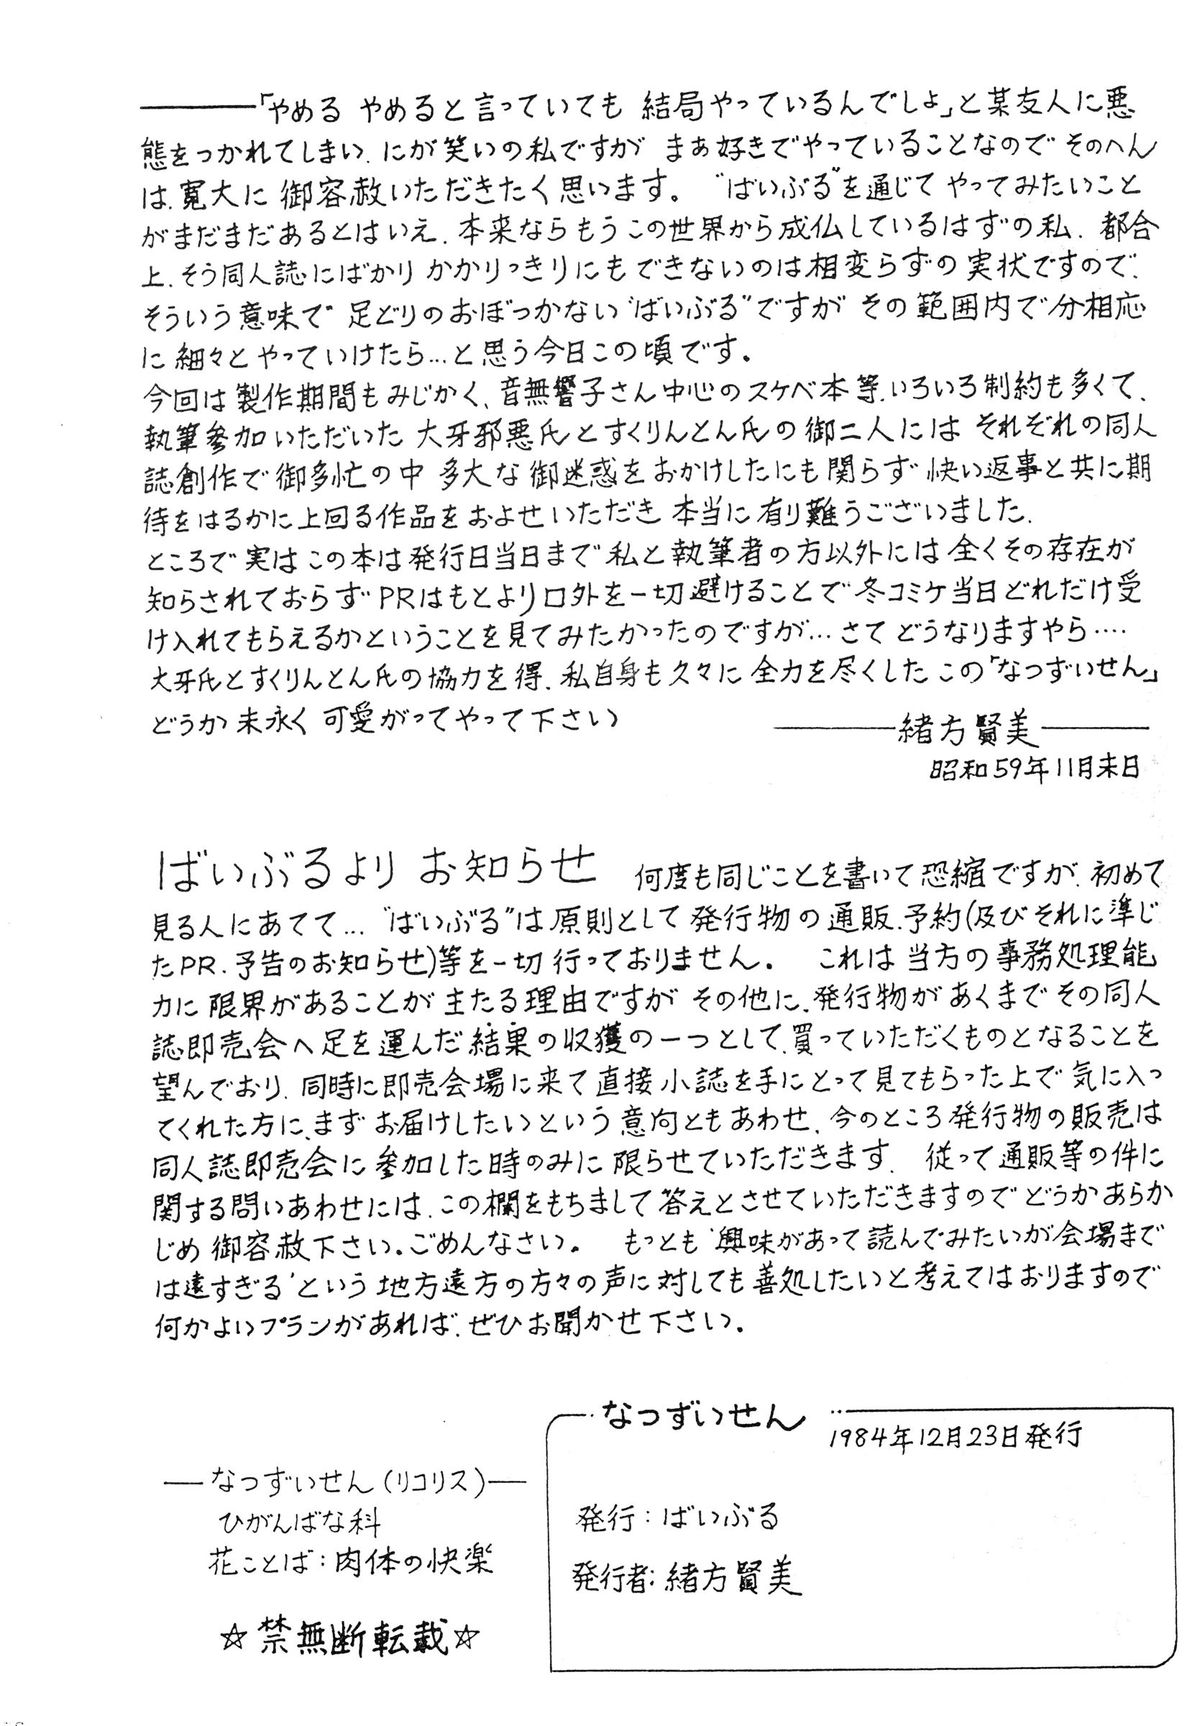 「やめる やめると言っていても 結局やっているんでしょ」と某友人に悪
態をつかれてしまい、にが笑いの私ですが まぁ好きでやっていることなので そのへん
は、寛大に 御容赦いただきたく思います。 “ばいぶる”を通じて やってみたいこと
がまだまだあるとはいえ、本来ならもうこの世界から成仏しているはずの私、都合
上、そう同人誌にばかり かかりっきりにもできないのは相変らずの実状ですので、
そういう意味で 足どりのおぼつかない“ばいぶる”ですが その範囲内で分相応
に細々とやっていけたら…と思う今日この頃です。
今回は製作期間もみじかく、音無響子さん中心のスケベ本等、いろいろ制約も多くて、
執筆参加いただいた 大牙邪悪氏とすくりんとん氏の御二人には それぞれの同人
誌創作で御多忙の中 多大な御迷惑をおかけしたにも関らず 快い返事と共に期
待をはるかに上回る作品をおよせいただき 本当に有り難うございました。
ところで実はこの本は発行日当日まで私と執筆者の方以外には全くその存在が
知らされておらず PRはもとより口外を一切避けることで冬コミケ当日どれだけ受
け入れてもらえるかということを見てみたかったのですが…さてどうなりますやら‥‥
大牙氏とすくりんとん氏の協力を得、私自身も久々に全力を尽くしたこの「なつずいせん」
どうか末永く可愛がってやって下さい
緒方賢美
昭和59年11月末日
ばいぶるより お知らせ 何度も同じことを書いて恐縮ですが、初めて
見る人にあてて… “ばいぶる”は原則として発行物の通販、予約(及びそれに準じ
たPR、予告のお知らせ)等を一切行っておりません。 これは当方の事務処理能
力に限界があることが主たる理由ですが その他に、発行物があくまでその同人
誌即売会へ足を運んだ結果の収獲の一つとして、買っていただくものとなることを
望んでおり、同時に即売会場に来て直接小誌を手にとって見てもらった上で気に入っ
てくれた方に、まずお届けしたいという意向ともあわせ、今のところ発行物の販売は
同人誌即売会に参加した時のみに限らせていただきます。 従って通販等の件に
関する問いあわせには、この欄をもちまして答えとさせていただきますのでどうかあらか
じめ御容赦下さい。ごめんなさい。 もっとも‘興味があって読んでみたいが会場まで
は遠すぎる’という地方遠方の方々の声に対しても善処したいと考えてはおりますので
何かよいプランがあれば、ぜひお聞かせ下さい。
なつずいせん
1984年12月23日発行
発行：ばいぶる
発行者：緒方賢美
なつずいせん(リコリス)
ひがんばな科
花ことば：肉体の快楽
☆禁無断転載☆